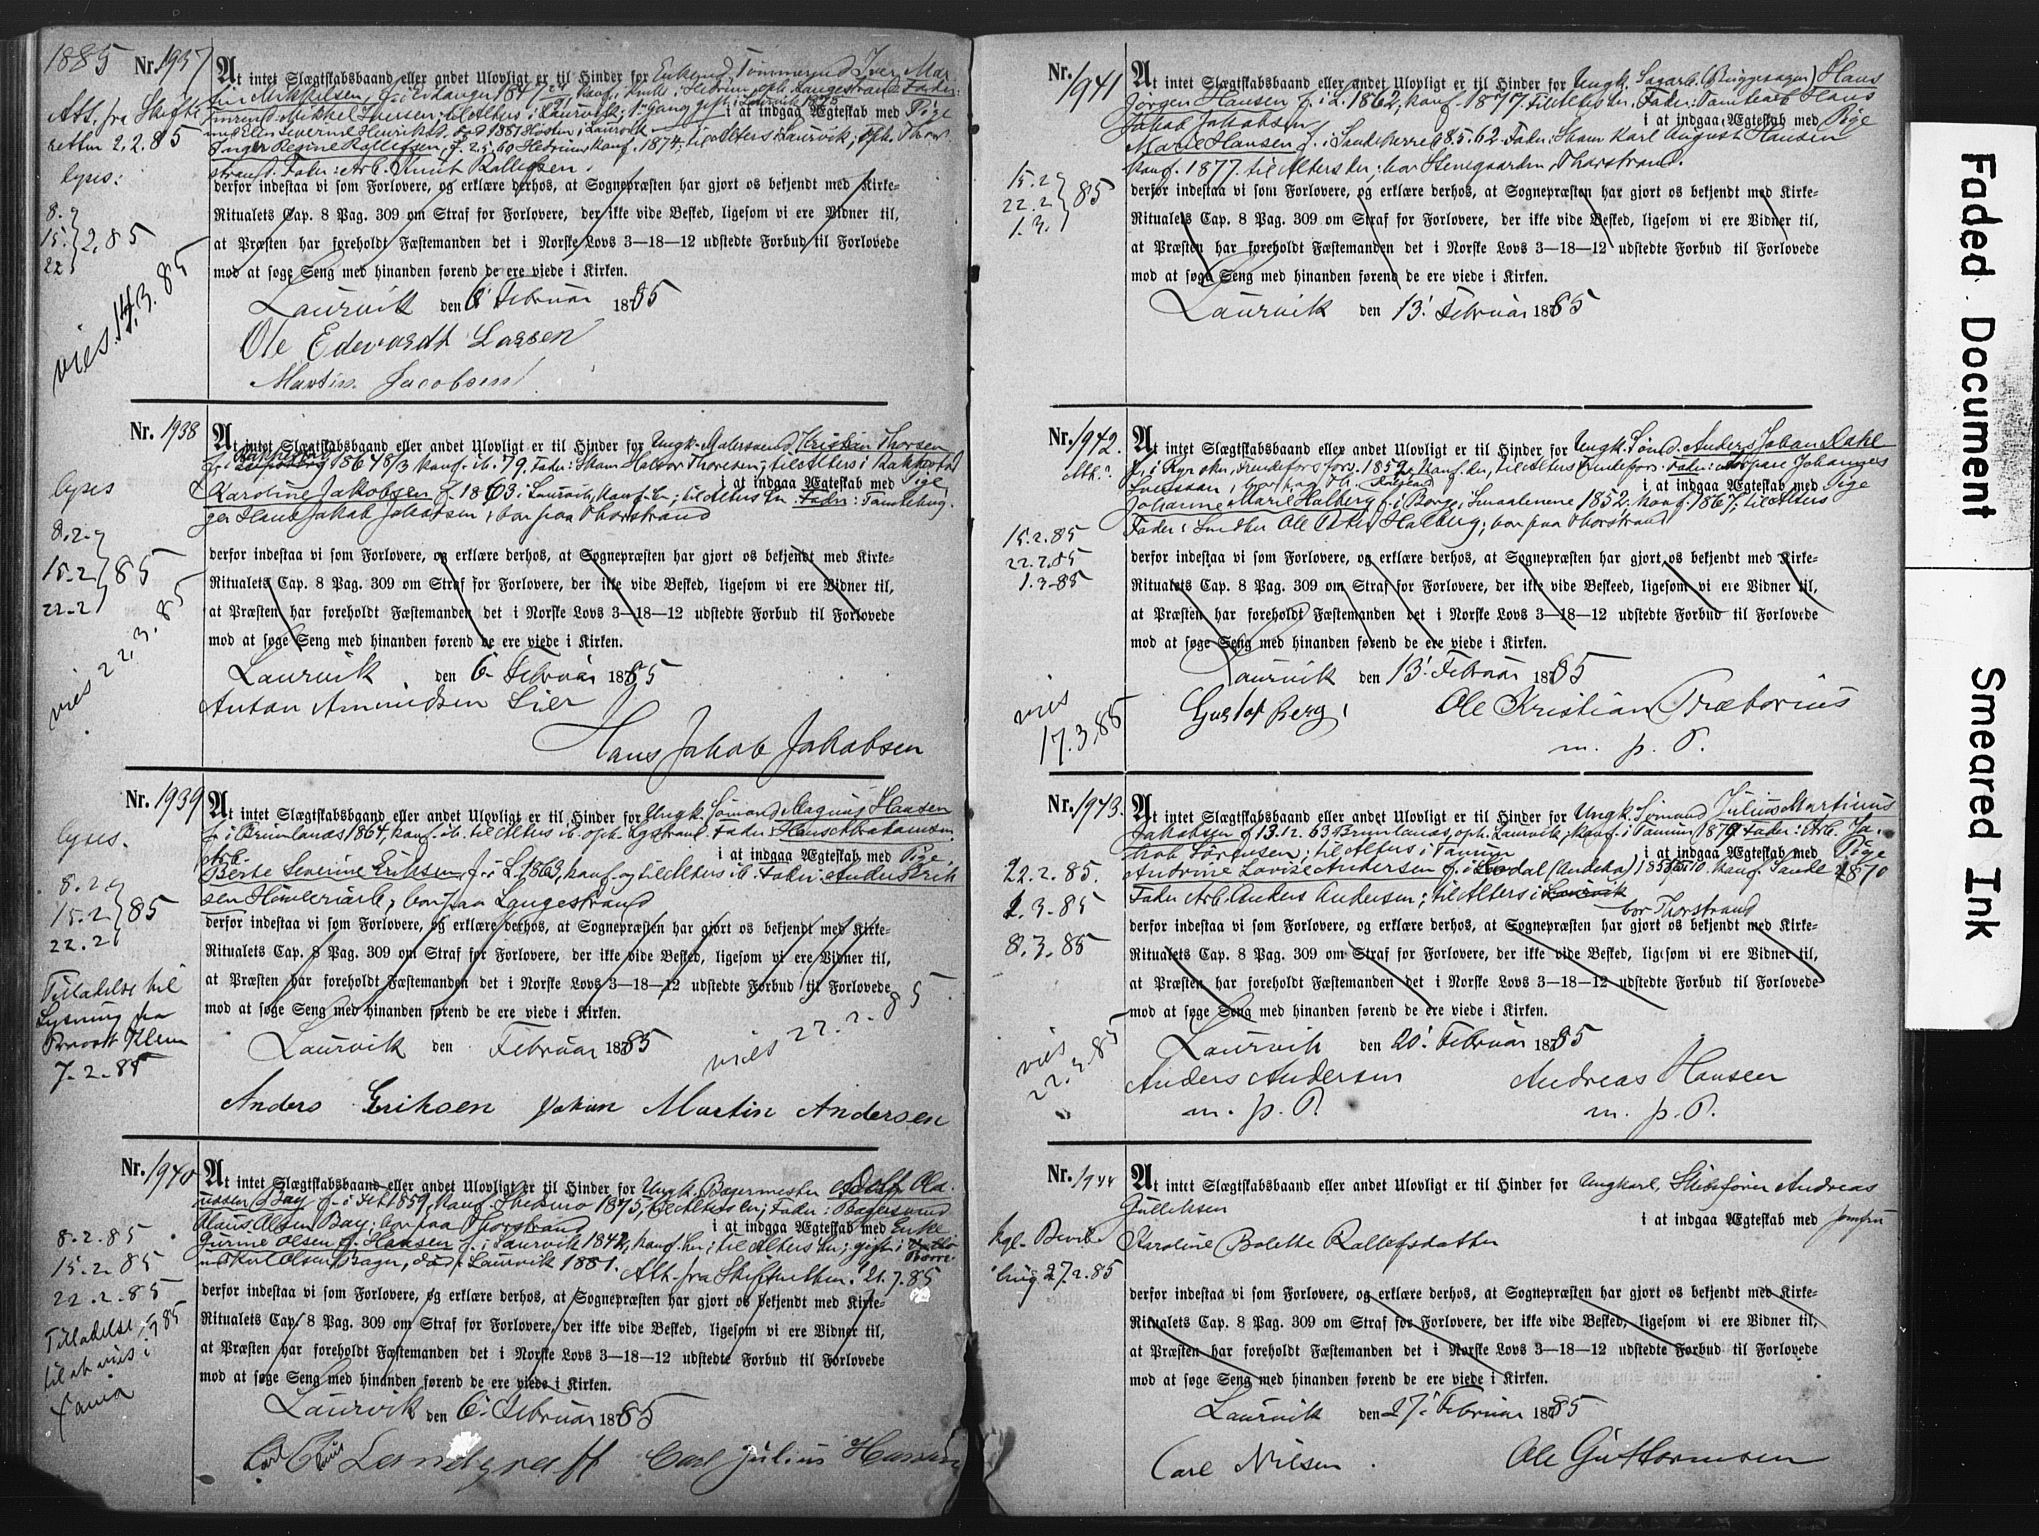 1885
Nr. 1937
At intet Slægtskabsbaand eller andet Ulovligt er til Hinder for Enkemd Tømmermd Iver Mar-
tin Mikkelsen, f. i Eidanger 1847
Tømrmd. Mikkel Iversen; til Alters i Laurvik; 1ste Gang gift i Laurvik 1875
i at indgaa Ægteskab med Pige
med Ellen Severine Henriksd. død 1881 Høsten i Laurvik
Inger Regine Rollefsen, f. 2.5.60 Hedrum, konf. 1874; til Alters i Laurvik, oph. Thor-
strand. Fader: Arb. Knut Rollefsen.
derfor indestaa vi som Forlovere, og erklære derhos, at Sognepræsten har gjort os bekjendt med Kirke-
Ritualets Cap. 8 Pag. 309 om Straf for Forlovere, der ikke vide Besked, ligesom vi ere Vidner til,
at Præsten har foreholdt Fæstemanden det i Norske Lovs 3—18—12 udstedte Forbud til Forlovede
mod at søge Seng med hinanden førend de ere viede i Kirken.
Laurvik den 6' Februar 1885
Ole Edevardt Larsen
Martin Jacobsen
Att. fra Skifte
retten 2.2.85
lyses:
8.
15. 2.85
22
vies 14.3.85
Nr. 1938
At intet Slægtskabsbaand eller andet Ulovligt er til Hinder for Ungk. Malersvend Kristian Thorsen
f. i 1864 8/3 konf. ib. 79. Fader: Skom Halvor Thoresen; til Alters i
i at indgaa Ægteskab med Pige
Karoline Jakobsen f. 1863 i Laurvik, konf. her; til Alters her. Fader: Tomtebryg-
ger Hans Jakob Jakobsen, bor paa Thorstrand
derfor indestaa vi som Forlovere, og erklære derhos, at Sognepræsten har gjort os bekjendt med Kirke-
Ritualets Cap. 8 Pag. 309 om Straf for Forlovere, der ikke vide Besked, ligesom vi ere Vidner til,
at Præsten har foreholdt Fæstemanden det i Norske Lovs 3—18—12 udstedte Forbud til Forlovede
mod at søge Seng med hinanden førend de ere viede i Kirken.
Laurvik den 6. Februar 1885
Anton Amundsen Lier
Hans Jakob Jakobsen
lyses
8.2.
15.2 85
22.2
vies 22.3.85
Nr. 1939
At intet Slægtskabsbaand eller andet Ulovligt er til Hinder for Ungk. Sømand Magnus Hansen
f. i Brunlanæs 1864, konf. ib. til Alters ib. oph. Lgstrand. Fader: Hans Abrahamsen
Arb. i at indgaa Ægteskab med Pige
Berte Severine Eriksen f. i L. 1863, konf. og til Alters ib. Fader: Anders Erik
sen Høvleriarb., bor paa Langestrand
derfor indestaa vi som Forlovere, og erklære derhos, at Sognepræsten har gjort os bekjendt med Kirke-
Ritualets Cap. 8 Pag. 309 om Straf for Forlovere, der ikke vide Besked, ligesom vi ere Vidner til,
at Præsten har foreholdt Fæstemanden det i Norske Lovs 3—18—12 udstedte Forbud til Forlovede
mod at søge Seng med hinanden førend de ere viede i Kirken.
Laurvik den Februar 1885
vies 22.2.85
Anders Eriksen Johan Martin Andersen
lyses.
8.2.
15.2 85
22.2
Tilladelse til
Lysning fra
Provst Klem
7.2.85
Nr. 1940
At intet Slægtskabsbaand eller andet Ulovligt er til Hinder for Ungk. Bagermester Adolf Cla-
ussen Bay f. i 1859, konf. 1875, til Alters her; Fader: Bagersvend
Klaus Olsen Bay; bor paa Thorstrand i at indgaa Ægteskab med Enke
Gurine Olsen f. Hansen f. i Laurvik 1842, konf. her; til Alters her; gift i
m. Karl Olsen Bager, død i Laurvik 1881. Att. fra Skifteretten 21.7.85
derfor indestaa vi som Forlovere, og erklære derhos, at Sognepræsten har gjort os bekjendt med Kirke-
Ritualets Cap. 8 Pag. 309 om Straf for Forlovere, der ikke vide Besked, ligesom vi ere Vidner til,
at Præsten har foreholdt Fæstemanden det i Norske Lovs 3—18—12 udstedte Forbud til Forlovede
mod at søge Seng med hinanden førend de ere viede i Kirken.
Laurvik den 6' Februar 1885
Landgraff Carl Julius Hansen
8.2.85
15.2.85
22.2.85
Tilladelse
til at vies i
Tanum
Nr. 1941
At intet Slægtskabsbaand eller andet Ulovligt er til Hinder for Ungk. Sagarb. (Bryggesagen) Hans
Jørgen Hansen f. i L. 1862, konf. 1877. til Alters her. Fader: Tomtearb. Hans
Jakob Jakobsen i at indgaa Ægteskab med Pige
Marie Hansen f. i Sandeherred 8.5.62. Fader: Skom Karl August Hansen
konf. 1877. til Alters her; bor Steengaarden, Thorstrand.
derfor indestaa vi som Forlovere, og erklære derhos, at Sognepræsten har gjort os bekjendt med Kirke-
Ritualets Cap. 8 Pag. 309 om Straf for Forlovere, der ikke vide Besked, ligesom vi ere Vidner til,
at Præsten har foreholdt Fæstemanden det i Norske Lovs 3—18—12 udstedte Forbud til Forlovede
mod at søge Seng med hinanden førend de ere viede i Kirken.
Laurvik den 13' Februar 1885
15.2
22.2 85
1.3.
Nr. 1942.
At intet Slægtskabsbaand eller andet Ulovligt er til Hinder for Ungk. Sømd. Anders Johan Dahl
f. i Ryr skn, 1852, konf. der, til Alters Fader: Torpare Johannes
Svensson, i at indgaa Ægteskab med Pige
Johanne Marie Halberg f. i Borge, Smaalenene 1852. konf. 1867; til Alters
Fader: Smed Ole Halberg; bor paa Thorstrand
derfor indestaa vi som Forlovere, og erklære derhos, at Sognepræsten har gjort os bekjendt med Kirke-
Ritualets Cap. 8 Pag. 309 om Straf for Forlovere, der ikke vide Beskeed, ligesom vi ere Vidner til,
at Præsten har foreholdt Fæstemanden det i Norske Lovs 3—18—12 udstedte Forbud til Forlovede
mod at søge Seng med hinanden førend de ere viede i Kirken.
Laurvik den 13' Februar 1885
Gustof Berg, Ole Kristian Prætorius
m. p. P.
Att.
15.2.85
22.2.85
1.3.85
vies
17.3.85
Nr. 1943.
At intet Slægtskabsbaand eller andet Ulovligt er til Hinder for Ungk. Sømand Julius Martinus
Jakobsen f. 13.12.63 Brunlanæs, oph. Laurvik, konf. i Tanum 1879. Fader: Arb. Ja-
kob Sørensen; til Alters i Tanum i at indgaa Ægteskab med Pige
Andrine Lovise Andersen f. i konf. Sande 1870
Fader Arb. Anders Andersen; til Alters i Laurvik
bor Thorstrand
derfor indestaa vi som Forlovere, og erklære derhos, at Sognepræsten har gjort os bekjendt med Kirke-
Ritualets Cap. 8 Pag. 309 om Straf for Forlovere, der ikke vide Besked, ligesom vi ere Vidner til,
at Præsten har foreholdt Fæstemanden det i Norske Lovs 3—18—12 udstedte Forbud til Forlovede
mod at søge Seng med hinanden førend de ere viede i Kirken.
Laurvik den 20' Februar 1885
Anders Andersen Andreas Hansen
m. p. P. m. p. P.
22.2.85.
1.3.85
8.3.85
vies
22.3.85
Nr. 1944
At intet Slægtskabsbaand eller andet Ulovligt er til Hinder for Ungkarl, Skibsfører Andreas
Gulliksen
i at indgaa Ægteskab med Jomfru
Karoline Bolette Rollefsdatter
derfor indestaa vi som Forlovere, og erklære derhos, at Sognepræsten har gjort os bekjendt med Kirke-
Ritualets Cap. 8 Pag. 309 om Straf for Forlovere, der ikke vide Besked, ligesom vi ere Vidner til,
at Præsten har foreholdt Fæstemanden det i Norske Lovs 3—18—12 udstedte Forbud til Forlovede
mod at søge Seng med hinanden førend de ere viede i Kirken.
Laurvik den 27' Februar 1885
Carl Nilsen Ole Guttormsen
Kgl. Bevil
ling 27.2.85
Faded Document
Smeared Ink